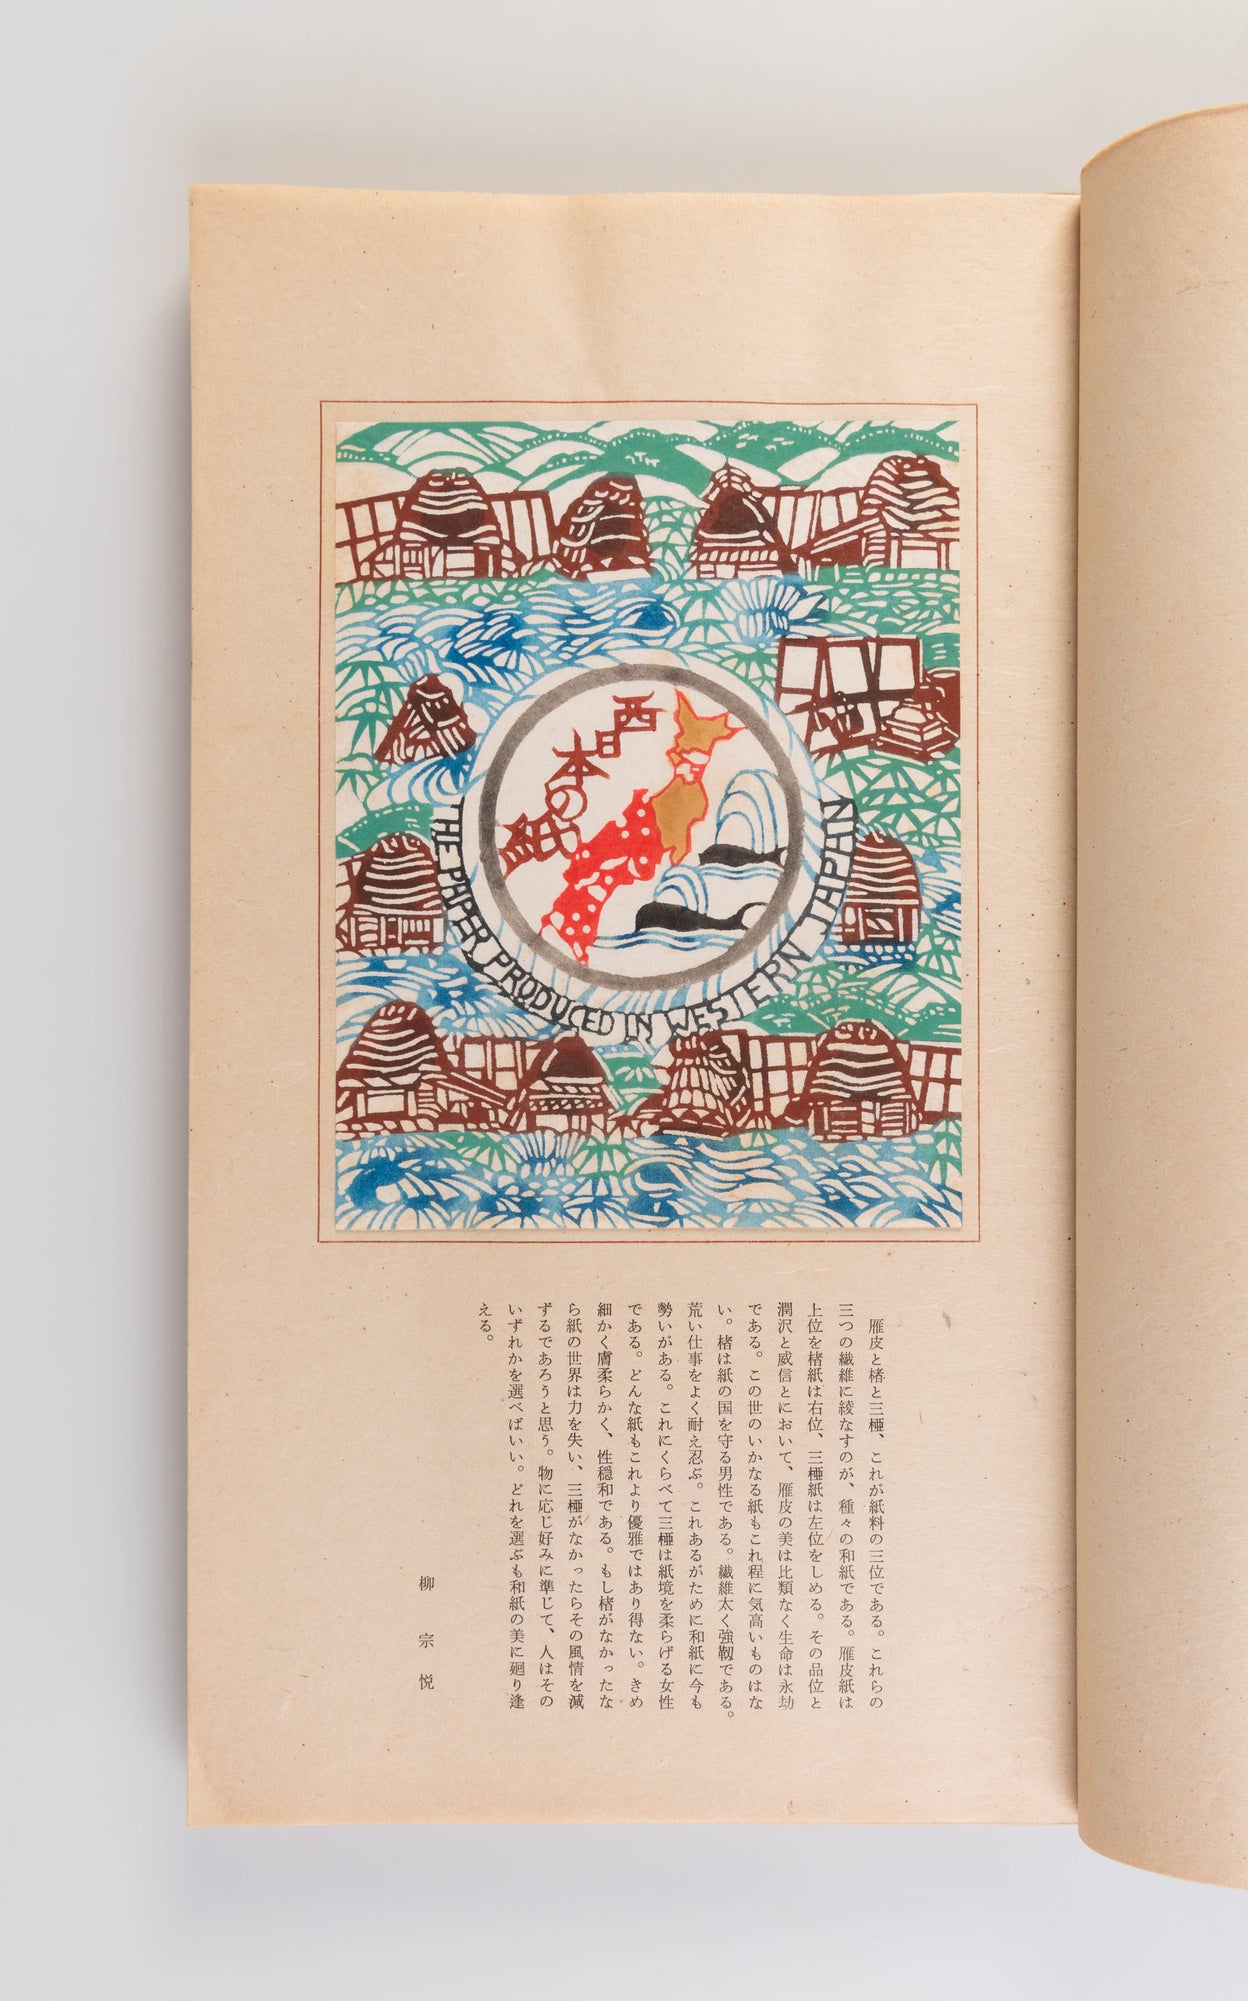 西日本の紙
THE PAPER PRODUCED IN WESTERN JAPAN
雁皮と楮と三椏、これが紙料の三位である。これらの
三つの繊維に綾なすのが、種々の和紙である。雁皮紙は
上位を楮紙は右位、三椏紙は左位をしめる。その品位と
潤沢と威信とにおいて、雁皮の美は比類なく生命は永劫
である。この世のいかなる紙もこれ程に気高いものはな
い。楮は紙の国を守る男性である。繊維太く強靱である。
荒い仕事をよく耐え忍ぶ。これあるがために和紙に今も
勢いがある。これにくらべて三椏は紙境を柔らげる女性
である。どんな紙もこれより優雅ではあり得ない。きめ
細かく膚柔らかく、性穏和である。もし楮がなかったな
ら紙の世界は力を失い、三椏がなかったらその風情を減
ずるであろうと思う。物に応じ好みに準じて、人はその
いずれかを選べばいい。どれを選ぶも和紙の美に廻り逢
える。
柳宗悦